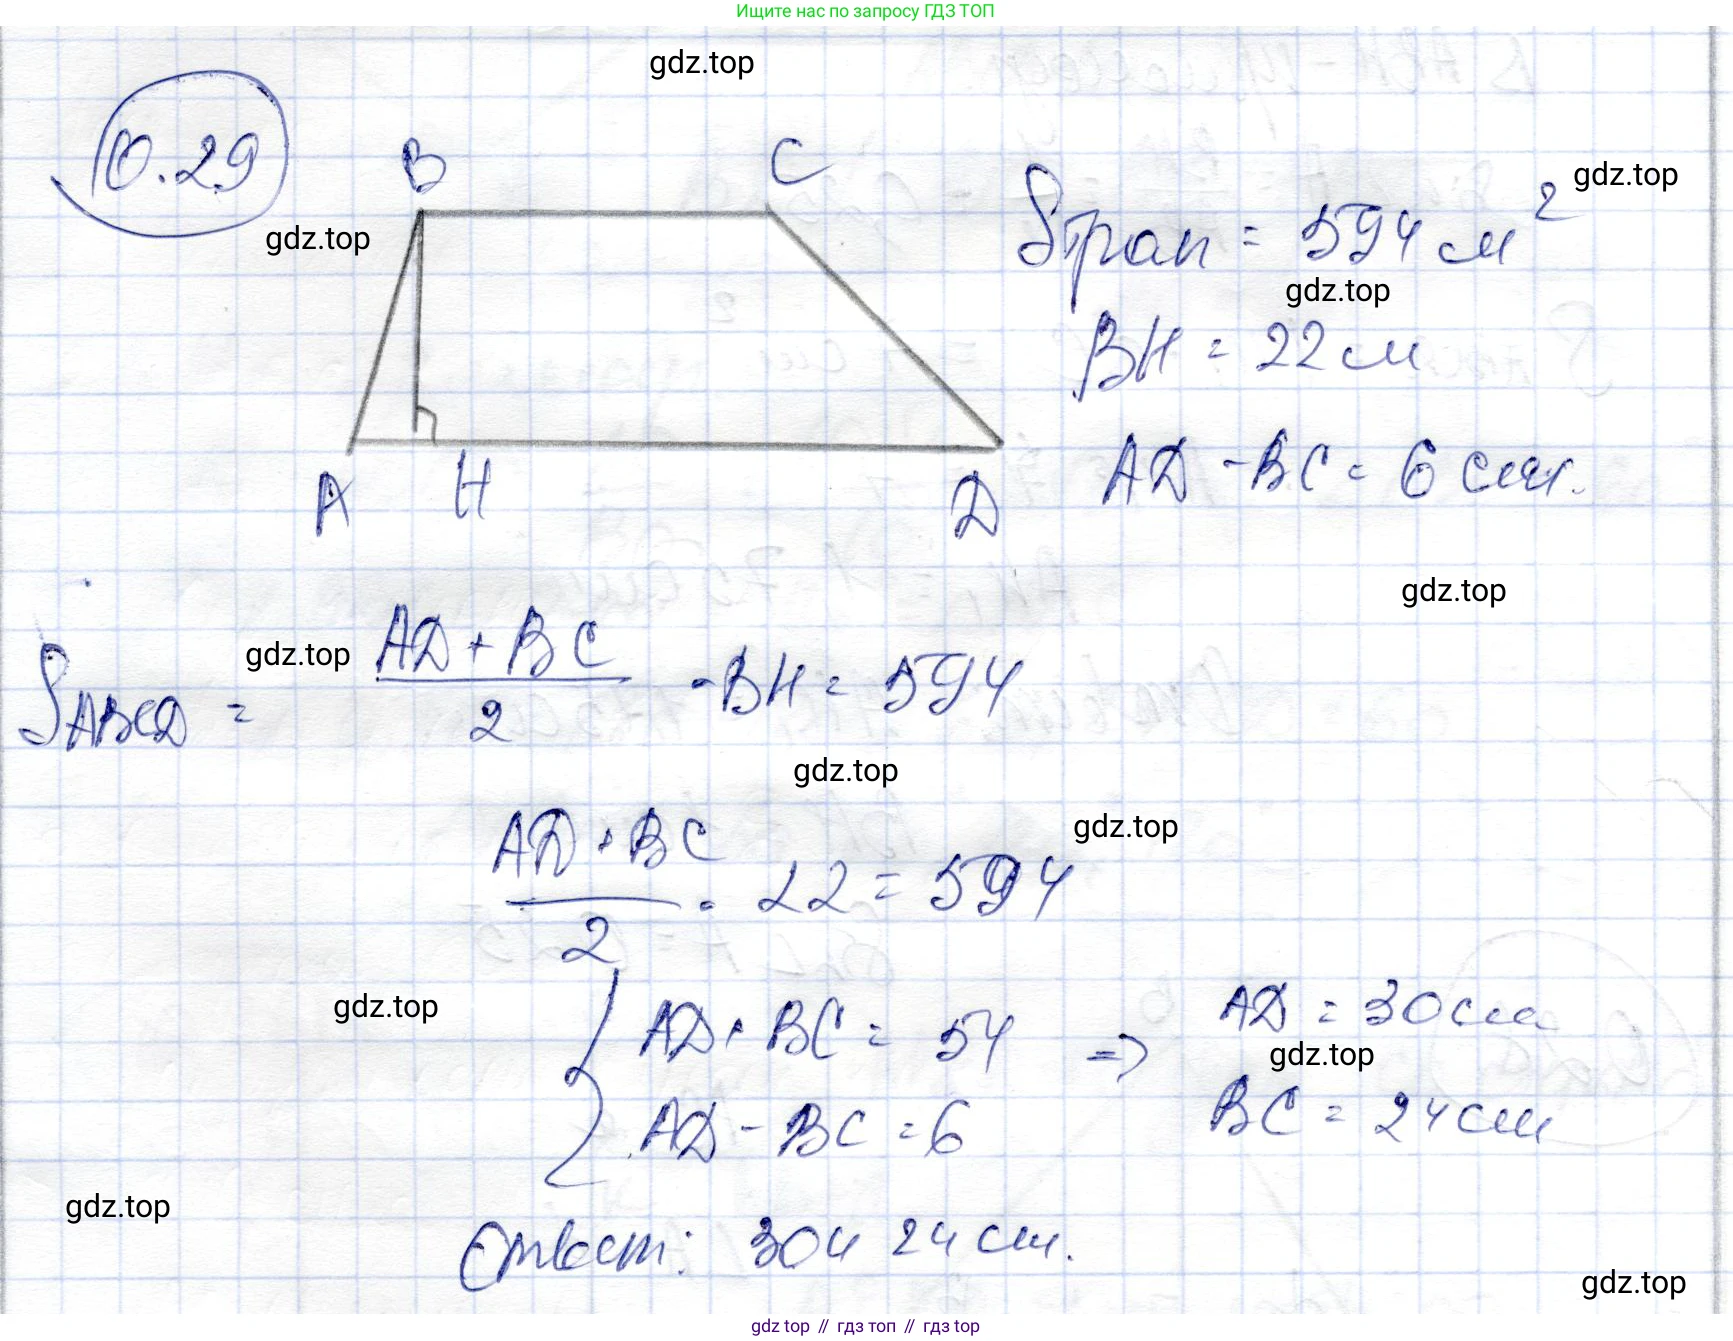 Ищите нас по запросу ГДЗ ТОП
gdz.top
10.29
B
C
gdz.top
gdz.top
Sтрап = 594 м²
gdz.top
BH = 22 м
AD - BC = 6 см.
A
H
D
gdz.top
gdz.top
SABCD = (AD + BC)/2 · BH = 594
gdz.top
gdz.top
(AD + BC)/2 · 22 = 594
gdz.top
AD + BC = 54 => AD = 30 см
gdz.top
AD - BC = 6 BC = 24 см
gdz.top
Ответ: 30 и 24 см.
gdz.top
gdz top // гдз топ // гдз top